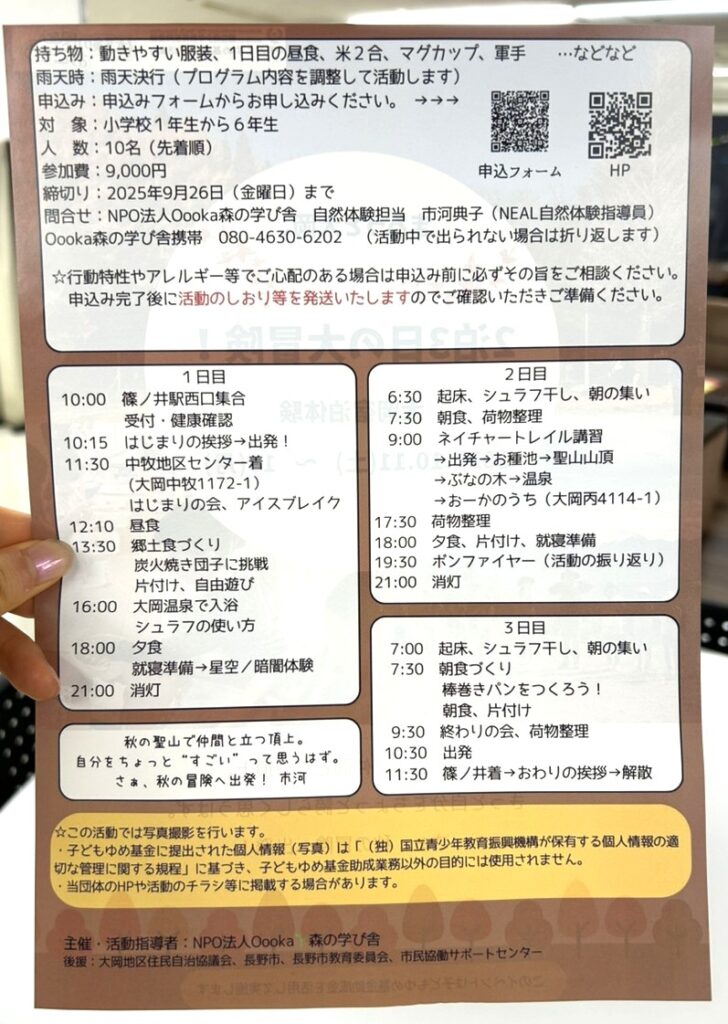 持ち物：動きやすい服装、1日目の昼食、米２合、マグカップ、軍手　　…などなど
雨天時：雨天決行（プログラム内容を調整して活動します）
申込み：申込みフォームからお申し込みください。 →→→
対　象：小学校１年生から６年生
人　数：10名（先着順）
参加費：9,000円
締切り：2025年9月26日（金曜日）まで
申込フォーム
HP
問合せ：NPO法人Oooka森の学び舎　自然体験担当　市河典子（NEAL自然体験指導員）
Oooka森の学び舎携帯　080-4630-6202　（活動中で出られない場合は折り返します）
☆行動特性やアレルギー等でご心配のある場合は申込み前に必ずその旨をご相談ください。
申込み完了後に活動のしおり等を発送いたしますのでご確認いただきご準備ください。
１日目
10:00　篠ノ井駅西口集合
受付・健康確認
10:15　はじまりの挨拶→出発！
11:30　中牧地区センター着
（大岡中牧1172-1）
はじまりの会、アイスブレイク
12:10　昼食
13:30　郷土食づくり
炭火焼き団子に挑戦
片付け、自由遊び
16:00　大岡温泉で入浴
シュラフの使い方
18:00　夕食
就寝準備→星空／暗闇体験
21:00　消灯
２日目
6:30　起床、シュラフ干し、朝の集い
7:30　朝食、荷物整理
9:00　ネイチャートレイル講習
→出発→お種池→聖山山頂
→ぶなの木→温泉
→おーかのうち（大岡丙4114-1）
17:30　荷物整理
18:00　夕食、片付け、就寝準備
19:30　ボンファイヤー（活動の振り返り）
21:00　消灯
３日目
7:00　起床、シュラフ干し、朝の集い
7:30　朝食づくり
棒巻きパンをつくろう！
朝食、片付け
9:30　終わりの会、荷物整理
10:30　出発
11:30　篠ノ井着→おわりの挨拶→解散
秋の聖山で仲間と立つ頂上。
自分をちょっと“すごい”って思うはず。
さぁ、秋の冒険へ出発！ 市河
☆この活動では写真撮影を行います。
・子どもゆめ基金に提出された個人情報（写真）は「（独）国立青少年教育振興機構が保有する個人情報の適
切な管理に関する規程」に基づき、子どもゆめ基金助成業務以外の目的には使用されません。
・当団体のHPや活動のチラシ等に掲載する場合があります。
主催・活動指導者：NPO法人Oooka 森の学び舎
後援：大岡地区住民自治協議会、長野市、長野市教育委員会、市民協働サポートセンター